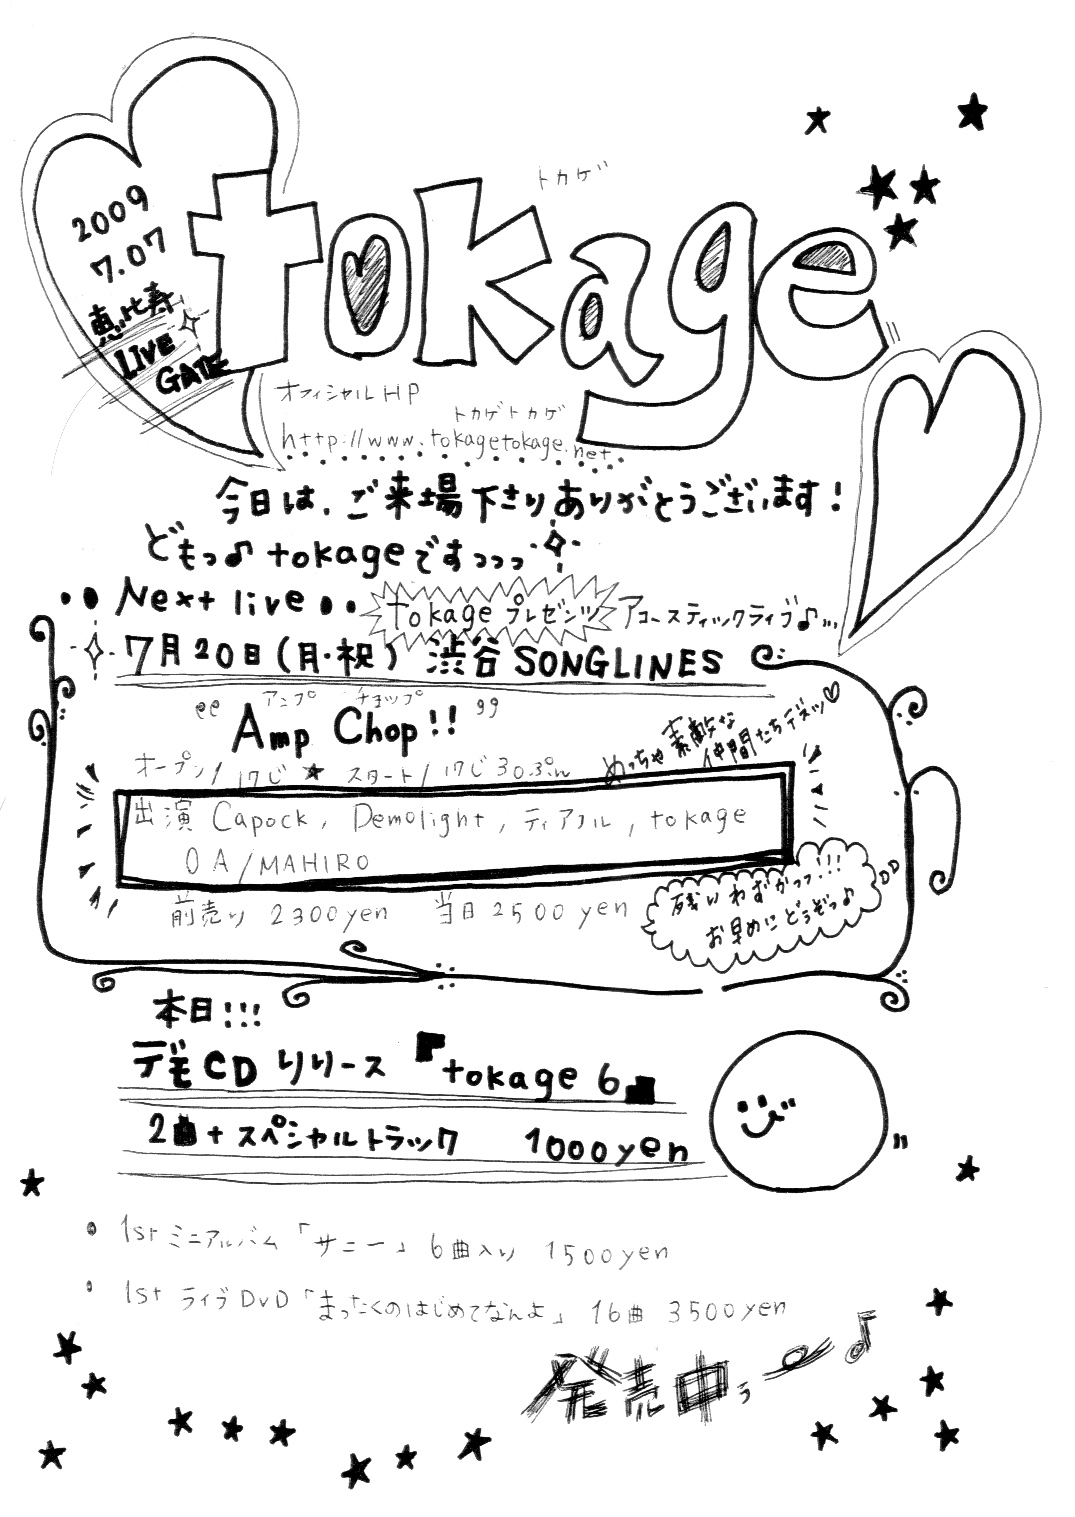 2009
7.07
恵比寿
LIVE
GATE
トカゲ
tokage
オフィシャルHP
トカゲトカゲ
http://www.tokagetokage.net
今日は、ご来場下さりありがとうございます!
どもっ♪tokageですっっっ
Next live
tokage プレゼンツ アコースティックライブ♪…
7月20日(月・祝) 渋谷 SONGLINES
アンプ チョップ
"Amp Chop!!"
めっちゃ素敵な
仲間たちデスッ♡
オープン/17じ ★ スタート/17じ30ぷん
出演 Capock, Demolight, ティアフル, tokage
OA/MAHIRO
前売り 2300yen 当日2500yen
残りわずかっっ!!!
お早めにどうぞっ♪
本日!!!
デモCDリリース『tokage 6』
2曲+スペシャルトラック 1000yen
・1st ミニアルバム「サニー」6曲入り 1500yen
・1st ライブDVD「まったくのはじめてなんよ」16曲 3500yen
発売中♪